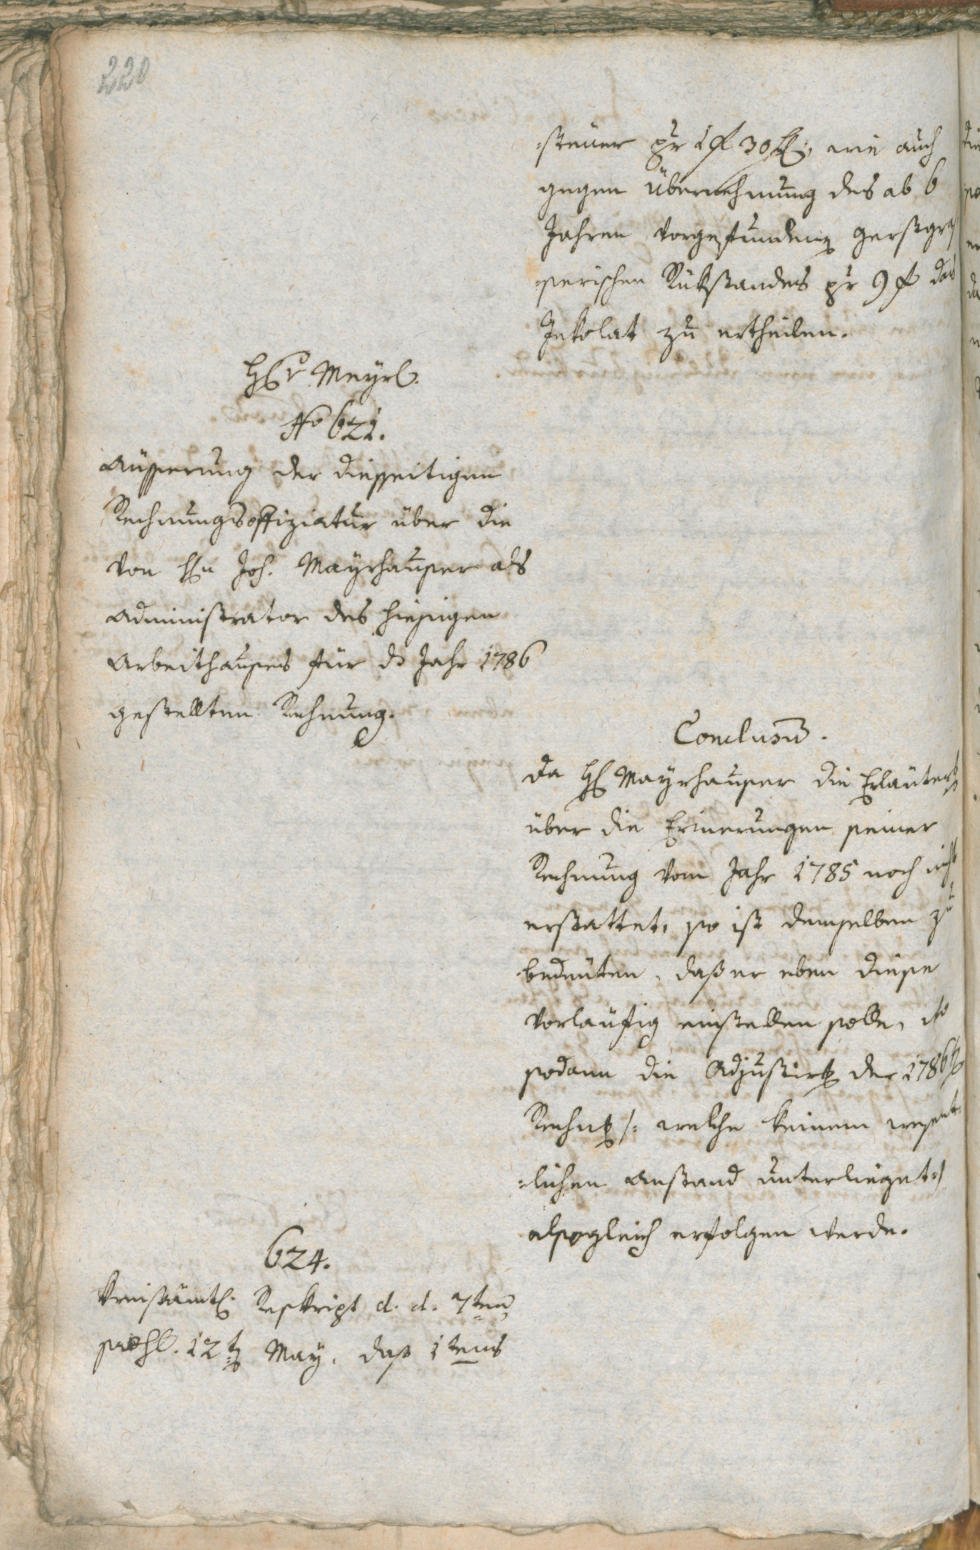 220
:steüer pr 1 f 30 xr, wie auch
gegen Übernehmung des ab 6
Jahren vorgefundenen
Rükstandes pr 9 f das
Inkolat zu ertheilen.
H Meyrl.
No 621.
Aüsserung der diesseitigen
Rechnungsoffiziatur über die
von Hn Joh. Mayrhauser als
Administrator des hiesigen
Arbeithauses für ds Jahr 1786
gestellten Rechnung.
Conclusum.
Da H Mayrhauser die Erläuter
über die Erinerungen seiner
Rechnung vom Jahr 1785 noch nicht
erstattet, so ist demselben zu
bedeuten, daß er eben diese
vorläufig einstellen solle, wo
sodann die Adjustirg der 1786
Rechng /: welche keinem wesent
:lichen Anstand unterlieget :/
alsogleich erfolgen werde.
624.
Kreisämtl. Reskript d. d. 7ten
12t May, daß 1tens